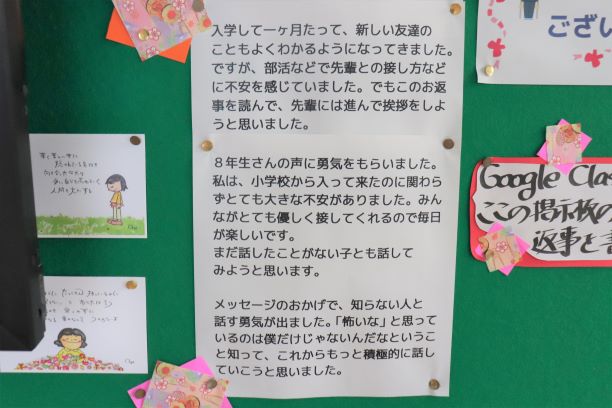 入学して一ヶ月たって、新しい友達の
こともよくわかるようになってきました。
ですが、部活などで先輩との接し方など
に不安を感じていました。でもこのお返
事を読んで、先輩には進んで挨拶をしよ
うと思いました。
８年生さんの声に勇気をもらいました。
私は、小学校から入って来たのに関わら
ずとても大きな不安がありました。みん
ながとても優しく接してくれるので毎日
が楽しいです。
まだ話したことがない子とも話して
みようと思います。
メッセージのおかげで、知らない人と
話す勇気が出ました。「怖いな」と思って
いるのは僕だけじゃないんだなというこ
と知って、これからもっと積極的に話し
ていこうと思いました。
ござい
Google Clas
ここの掲示板の
返事を書